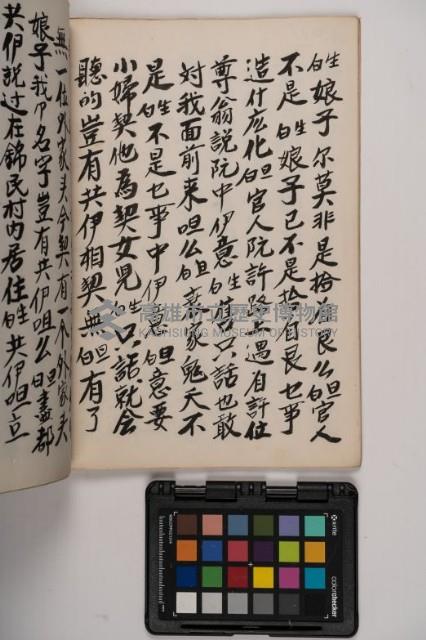 白生娘子尔莫非是拾自良么白旦官人
不是白生娘子已不是拾自良乜事
造什庅化白旦官人阮許路上遇有許位
尊翁説阮中伊意白生其只話也敢
対我面前来呾么白旦亲家鬼天不
是白生不是乜事中伊白旦意要
小婦契他為契女兒白生只話就会
聽的豈有共伊相契無白旦有了
無一位外家夫今契有一个外家夫
娘子我个名字豈有共伊呾么白旦盡都
共伊説过在錦民村内居住白生共伊呾立
高雄市立歷史博物館
KAOHSIUNG MUSEUM OF HISTORY
x-rite
colorchecker